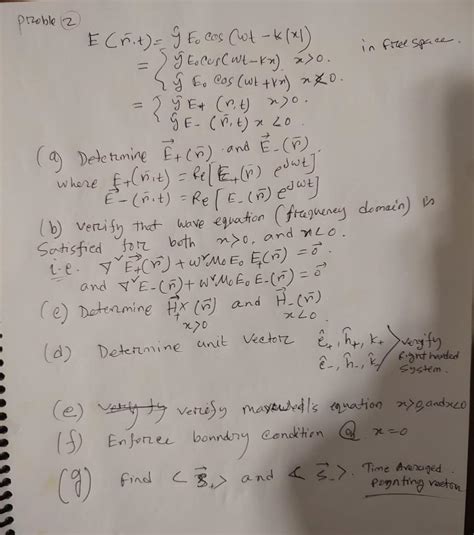 Problem ②
E (r̄,t) = ŷ E₀ cos (ωt – k|x|) in free space.
= { ŷ E₀ cos (ωt – kx) x>0.
ŷ E₀ cos (ωt + kx) x<0.
= { ŷ E₊ (r̄,t) x>0.
ŷ E₋ (r̄,t) x<0
(a) Determine E⃗₊(r̄) and E⃗₋(r̄)
where E₊(r̄,t) = Re[E₊(r̄) e^jωt].
E⃗₋(r̄,t) = Re [E₋(r̄) e^jωt]
(b) verify that wave equation (frequency domain) is
Satisfied for both x>0, and x<0.
i.e. ∇²E⃗₊(r̄) + ω²μ₀ε₀ E₊(r̄) = 0⃗
and ∇²E₋(r̄) + ω²μ₀ε₀ E₋(r̄) = 0⃗
(c) Determine H⃗₊(r̄) and H⃗₋(r̄)
x>0 x<0
(d) Determine unit vector ê₊, ĥ₊, k₊ verify
ê₋, ĥ₋, k₋ Right handed
System.
(e) verify maxwell's equation x>0, and x<0
(f) Enforce boundry condition @ x=0
(g) Find <S⃗₊> and <S⃗₋>. Time Averaged
Poynting vector